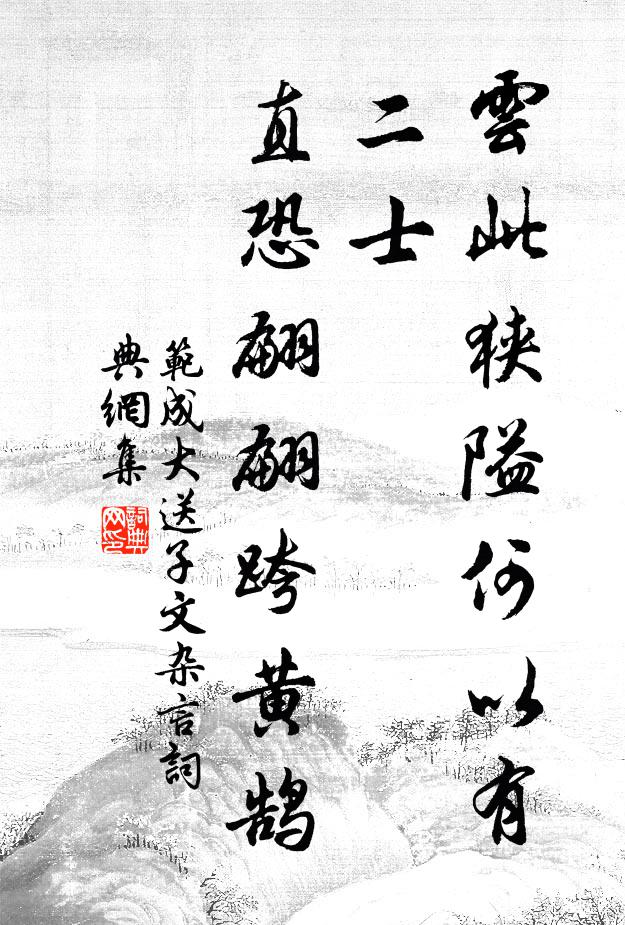 雲此狹隘何以有
二士
直恐翩翩跨黃鵠
範成大送子文杂言詞
典網集
詞典网印